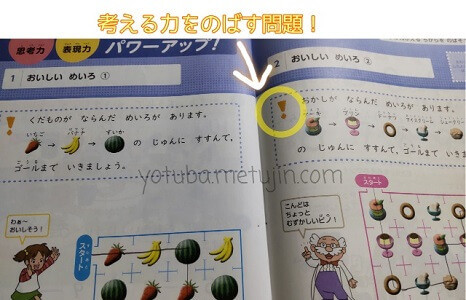 考える力をのばす問題！
思考力 表現力 パワーアップ！
1 おいしい めいろ ①
くだものが ならんだ めいろが あります。
いちご バナナ すいか
の じゅんに すすんで、
ゴールまで いきましょう。
わあ〜
おいしそう！
スタート
2 おいしい めいろ ②
おかしが ならんだ めいろが あります。
プリン
の じゅんに すすんで、ゴールまで いき
こんどは
ちょっと
むずかしいぞ！
スタート
yotuba.metujin.com